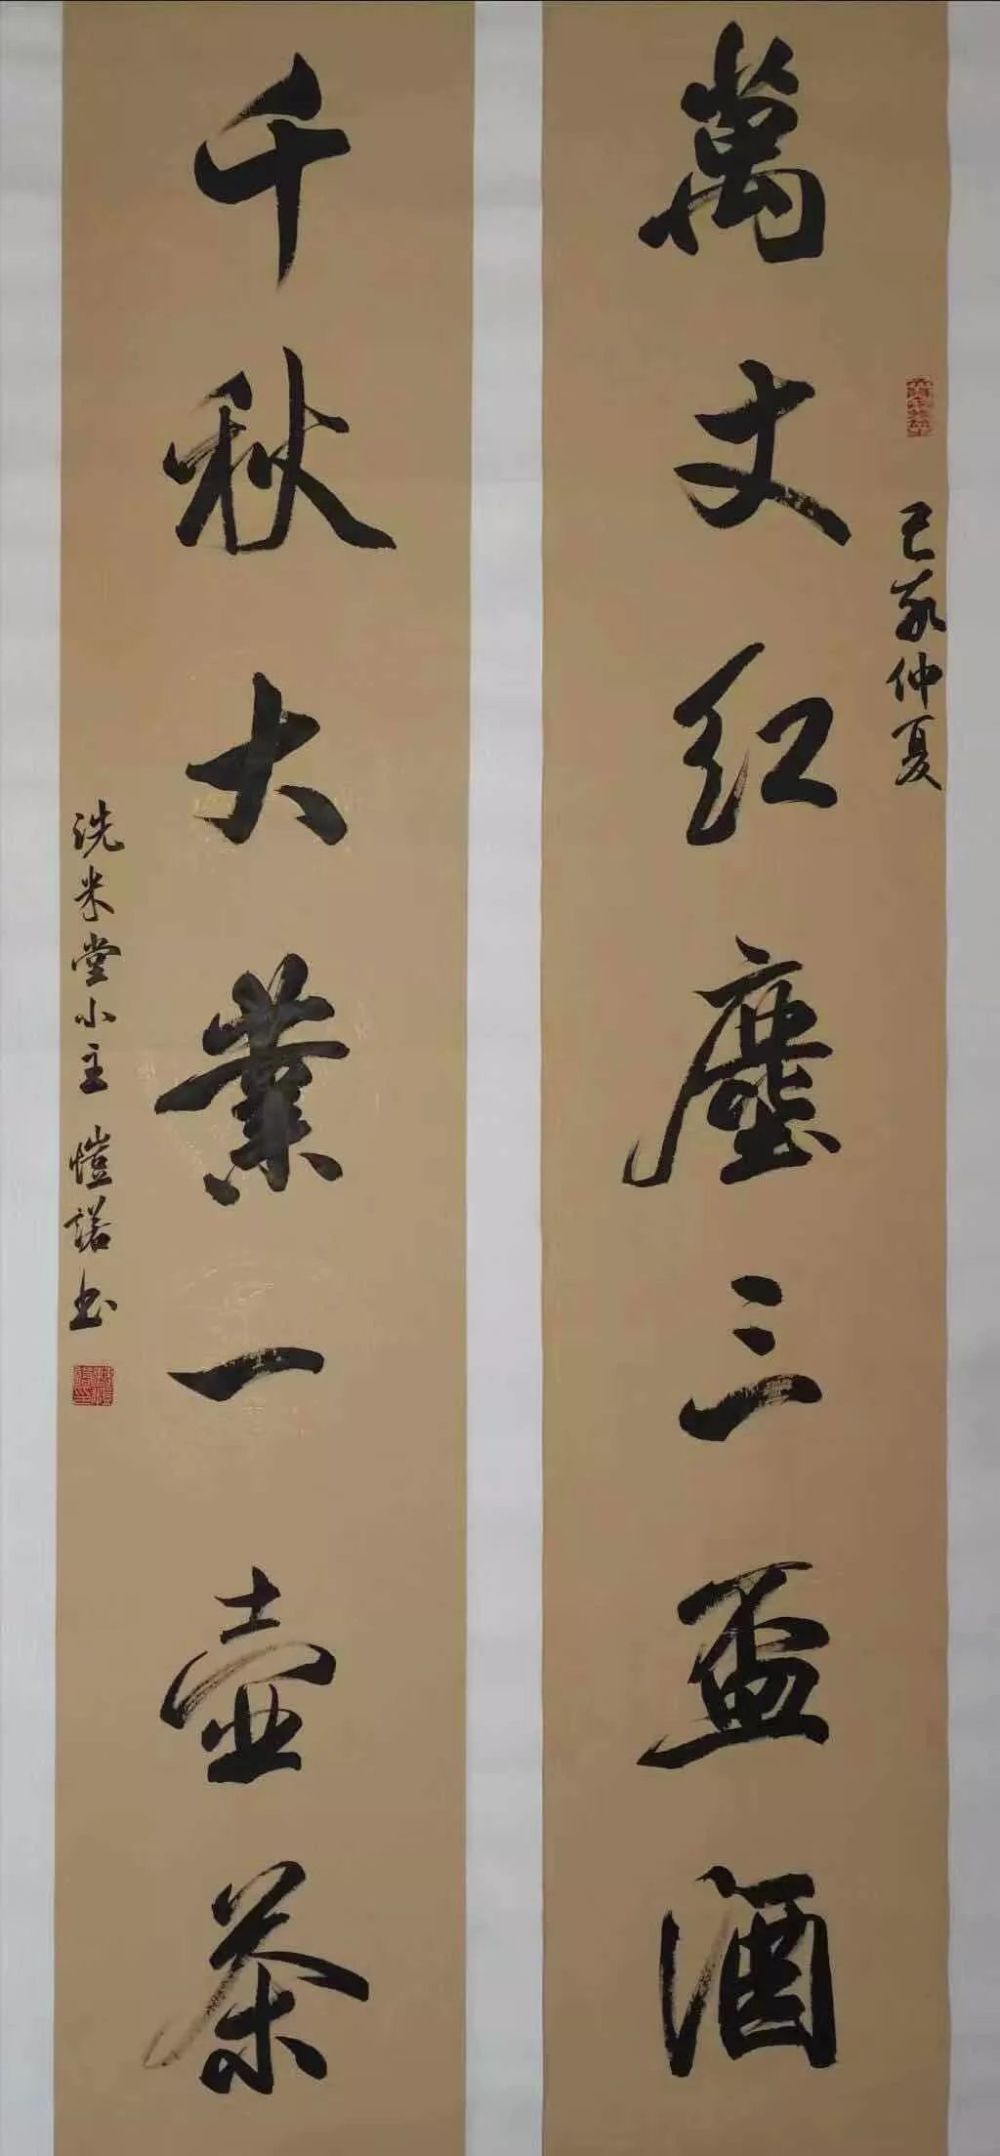 萬丈红塵三盃酒
己亥仲夏
千秋大業一壺茶
洗米堂小主 愷諾书